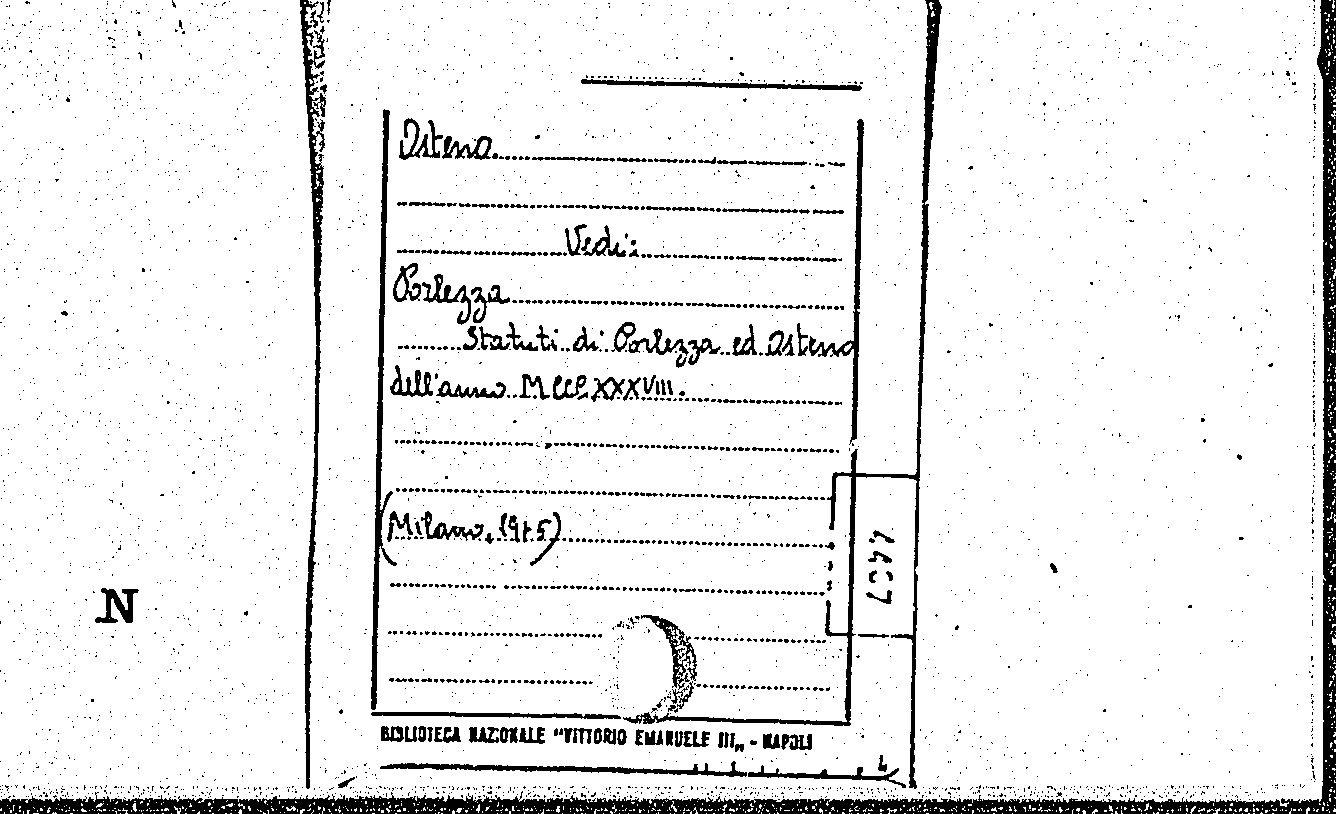 Osteno
Vedi:
Porlezza
Statuti di Porlezza ed Osteno
dell'anno MCCCXXXVIII.
(Milano, 1915)
N
BIBLIOTECA NAZIONALE "VITTORIO EMANUELE III„ - NAPOLI